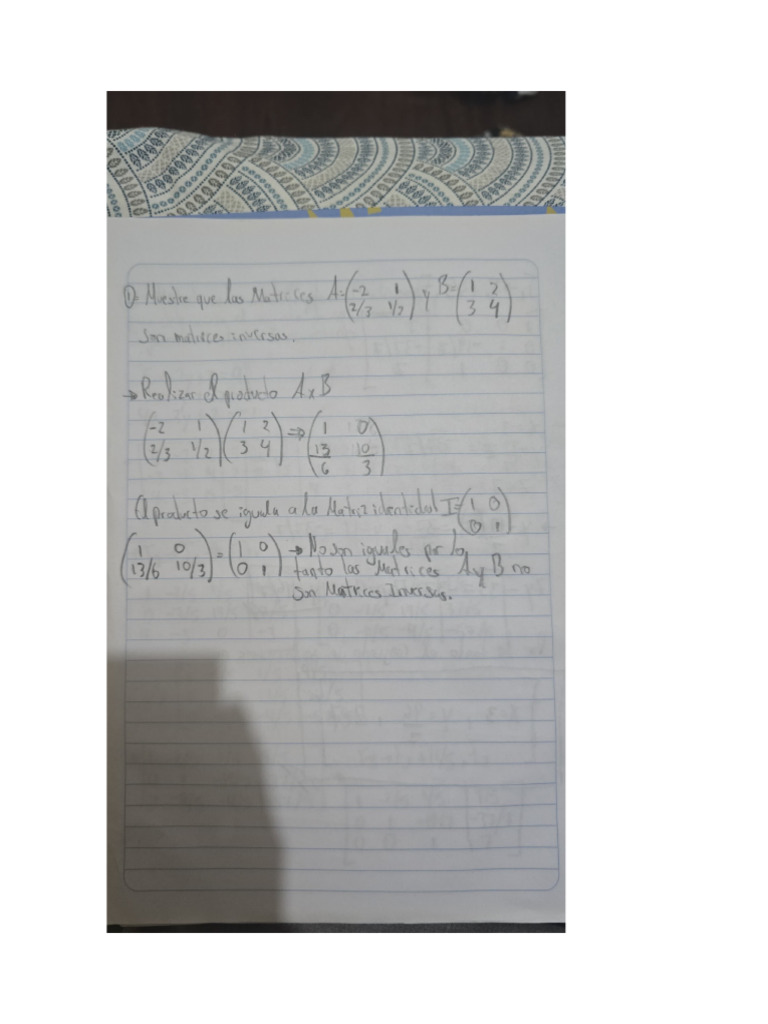 ① Muestre que las Matrices A=(-2 1 2/3 1/2) y B=(1 2 3 4)
son matrices inversas.
→ Realizar el producto A x B
(-2 1 2/3 1/2)(1 2 3 4) ⇒ (1 0 13/6 10/3)
El producto se iguala a la Matriz identidad I=(1 0 0 1)
(1 0 13/6 10/3) = (1 0 0 1) → No son iguales por lo
tanto las Matrices A y B no
son Matrices Inversas.